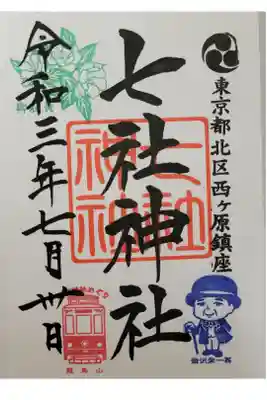 東京都北区西ヶ原鎮座
七社神社
七社神社
令和三年七月卅日
飛鳥山
渋沢栄一